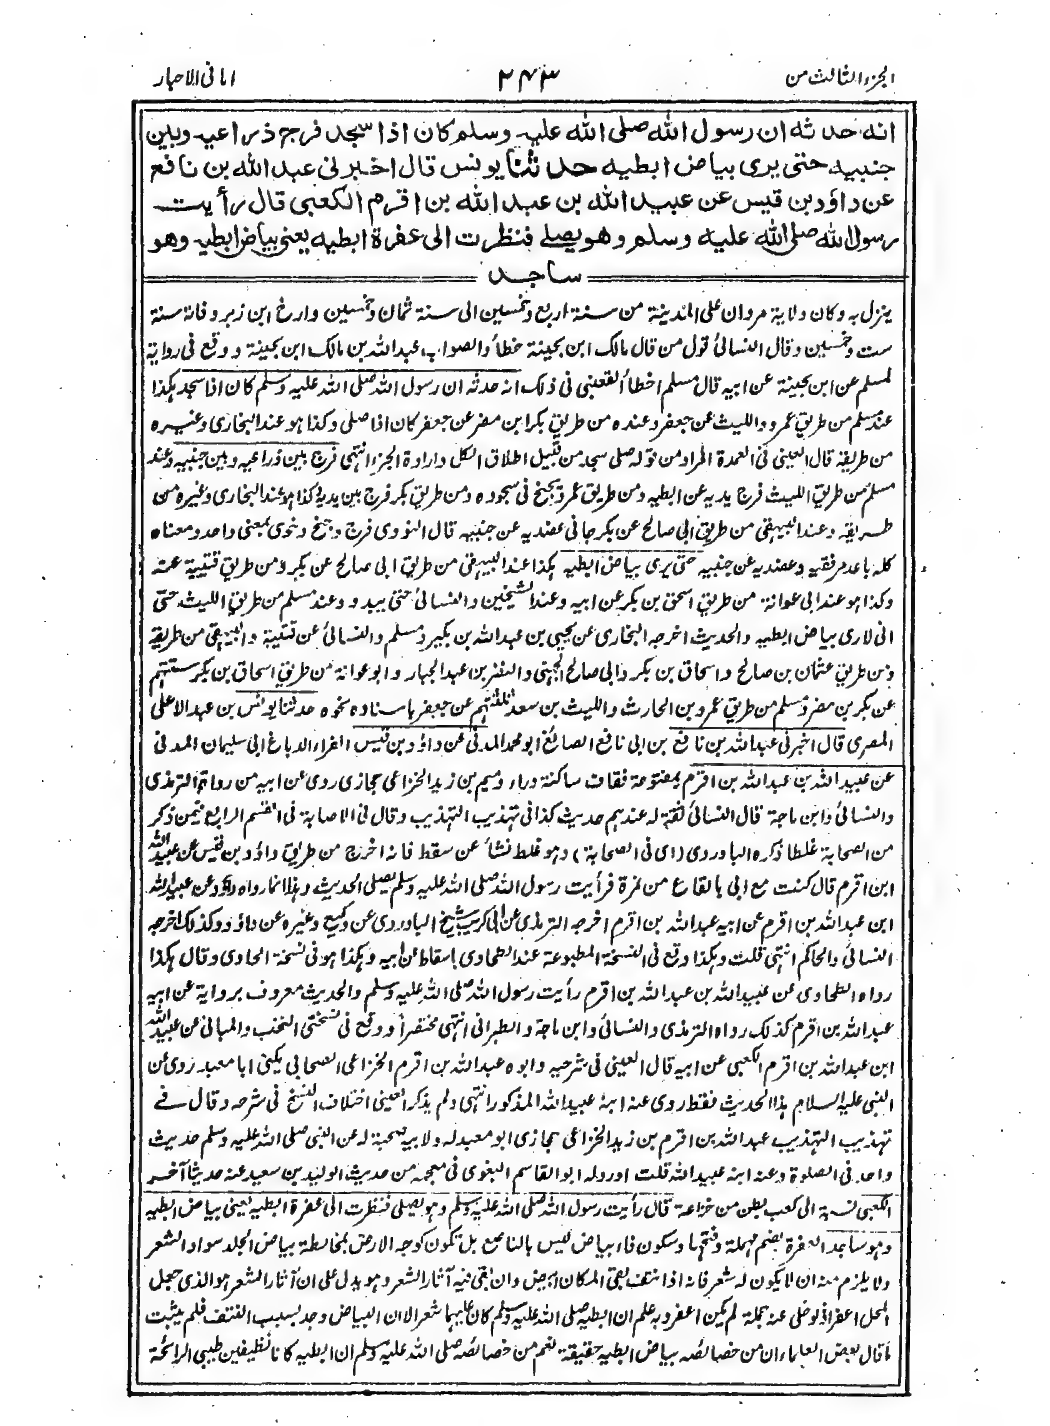 الجزء الثالث من
٢٤٣
امانی الاحبار
انه حدثه ان رسول الله صلی الله علیه وسلم کان اذا سجد فرج ذراعیه وبین
جنبیه حتی یری بیاض ابطیه حدثنا یونس قال اخبرنی عبد الله بن نافع
عن داؤد بن قیس عن عبید الله بن عبد الله بن اقرم الکعبی قال رأیت
رسول الله صلی الله علیه وسلم وهو یصلے فنظرت الی عفرة ابطیه یعنی بیاض ابطیه وهو
ساجد
ینزل به وکان ولایة مروان علی المدینة من سنة اربع وخمسین الی سنة ثمان وخمسین وارخ ابن زبر وفاته سنة
ست وخمسین وقال النسائی قول من قال مالک ابن بحینة خطأ والصواب عبد الله بن مالک ابن بحینة ووقع فی روایة
لمسلم عن ابن بحینة عن ابیه قال مسلم اخطأ القعنبی فی ذلک انه حدثه ان رسول الله صلی الله علیه وسلم کان اذا سجد هکذا
عند مسلم من طریق عمرو واللیث عن جعفر وعنده من طریق بکر ابن مضر عن جعفر کان اذا صلی وکذا هو عند البخاری وغیره
من طریقه قال العینی فی العمدة المراد من قوله صلی سجد من قبیل اطلاق الکل وارادة الجزء انتهی فرج بین ذراعیه وبین جنبیه وعند
مسلم من طریق اللیث فرج یدیه عن ابطیه ومن طریق عمرو یجنح فی سجوده ومن طریق بکر فرج بین یدیه کذا هو عند البخاری وغیره من
طریقه وعند البیهقی من طریق ابی صالح عن بکر جافی عضدیه عن جنبیه قال النووی فرج وجنح وخوی بمعنی واحد ومعناه
کله باعد مرفقیه وعضدیه عن جنبیه حتی یری بیاض ابطیه هکذا عند البیهقی من طریق ابی صالح عن بکر ومن طریق قتیبة عنه
وکذا هو عند ابی عوانة من طریق اسحق بن بکر عن ابیه وعند الشیخین والنسائی حتی یبدو وعند مسلم من طریق اللیث حتی
انی لاری بیاض ابطیه والحدیث اخرجه البخاری عن یحیی بن عبد الله بن بکیر ومسلم والنسائی عن قتیبة والبیهقی من طریقه
ومن طریق عثمان بن صالح واسحاق بن بکر وابی صالح الجهنی والنضر بن عبد الجبار وابو عوانة من طریق اسحاق بن بکر ستتهم
عن بکر بن مضر ومسلم من طریق عمرو بن الحارث واللیث بن سعد ثلثتهم عن جعفر باسناده نحوه حدثنا یونس بن عبد الاعلی
المصری قال اخبرنی عبد الله بن نافع بن ابی نافع الصائغ ابو محمد المدنی عن داؤد بن قیس الفراء الدباغ ابی سلیمان المدنی
عن عبید الله بن عبد الله بن اقرم بمفتوحة فقاف ساکنة وراء ومیم بن زید الخزاعی حجازی روی عن ابیه من رواة الترمذی
والنسائی وابن ماجة قال النسائی ثقة له عندهم حدیث کذا فی تهذیب التهذیب وقال فی الاصابة فی القسم الرابع فیمن ذکر
من الصحابة غلطا ذکره الباوردی (ای فی الصحابة) وهو غلط نشأ عن سقط فانه اخرج من طریق داؤد بن قیس عن عبید الله
ابن اقرم قال کنت مع ابی بالقاع من نمرة فرأیت رسول الله صلی الله علیه وسلم یصلی الحدیث وهذا انما رواه داؤد عن عبید الله
ابن عبد الله بن اقرم عن ابیه عبد الله بن اقرم اخرجه الترمذی عن ابی کریب شیخ الباوردی عن وکیع وغیره عن داؤد وکذلک اخرجه
النسائی والحاکم انتهی قلت وهکذا وقع فی النسخة المطبوعة عند الطحاوی باسقاط عن ابیه وهکذا هو فی نسخة الحاوی وقال هکذا
رواه الطحاوی عن عبید الله بن عبد الله بن اقرم رأیت رسول الله صلی الله علیه وسلم والحدیث معروف بروایة عن ابیه
عبد الله بن اقرم کذلک رواه الترمذی والنسائی وابن ماجة والطبرانی انتهی مختصرا ووقع فی نسختی النخب والمبانی عن عبید الله
ابن عبد الله بن اقرم الکعبی عن ابیه قال العینی فی شرحیه وابوه عبد الله بن اقرم الخزاعی الصحابی یکنی ابا معبد روی عن
النبی علیه السلام هذا الحدیث فقط روی عنه ابنه عبید الله المذکور انتهی ولم یذکر العینی اختلاف النسخ فی شرحه وقال فی
تهذیب التهذیب عبد الله بن اقرم بن زید الخزاعی حجازی ابو معبد له ولابیه صحبة له عن النبی صلی الله علیه وسلم حدیث
واحد فی الصلوة وعنه ابنه عبید الله قلت اورد له ابو القاسم البغوی فی معجمه من حدیث الولید بن سعید عنه حدیثا آخر
الکعبی نسبة الی کعب بطن من خزاعة قال رأیت رسول الله صلی الله علیه وسلم وهو یصلی فنظرت الی عفرة ابطیه یعنی بیاض ابطیه
وهو ساجد العفرة بضم مهملة وفتحها وسکون فاء بیاض لیس بالناصع بل کلون وجه الارض بمخالطة بیاض الجلد سواد الشعر
ولا یلزم منه ان لا یکون له شعر فانه اذا نتف بقی المکان ابیض وان بقی فیه آثار الشعر وهو یدل علی ان آثار الشعر هو الذی جعل
المحل اعفر اذ لو خلی عنه جملة لم یکن اعفر وبه علم ان ابطیه صلی الله علیه وسلم کان علیهما شعر الا ان البیاض وجد بسبب النتف فلم یثبت
ما قال بعض العلماء ان من خصائصه بیاض ابطیه حقیقة نعم من خصائصه صلی الله علیه وسلم ان ابطیه کانا نظیفین طیبی الرائحة